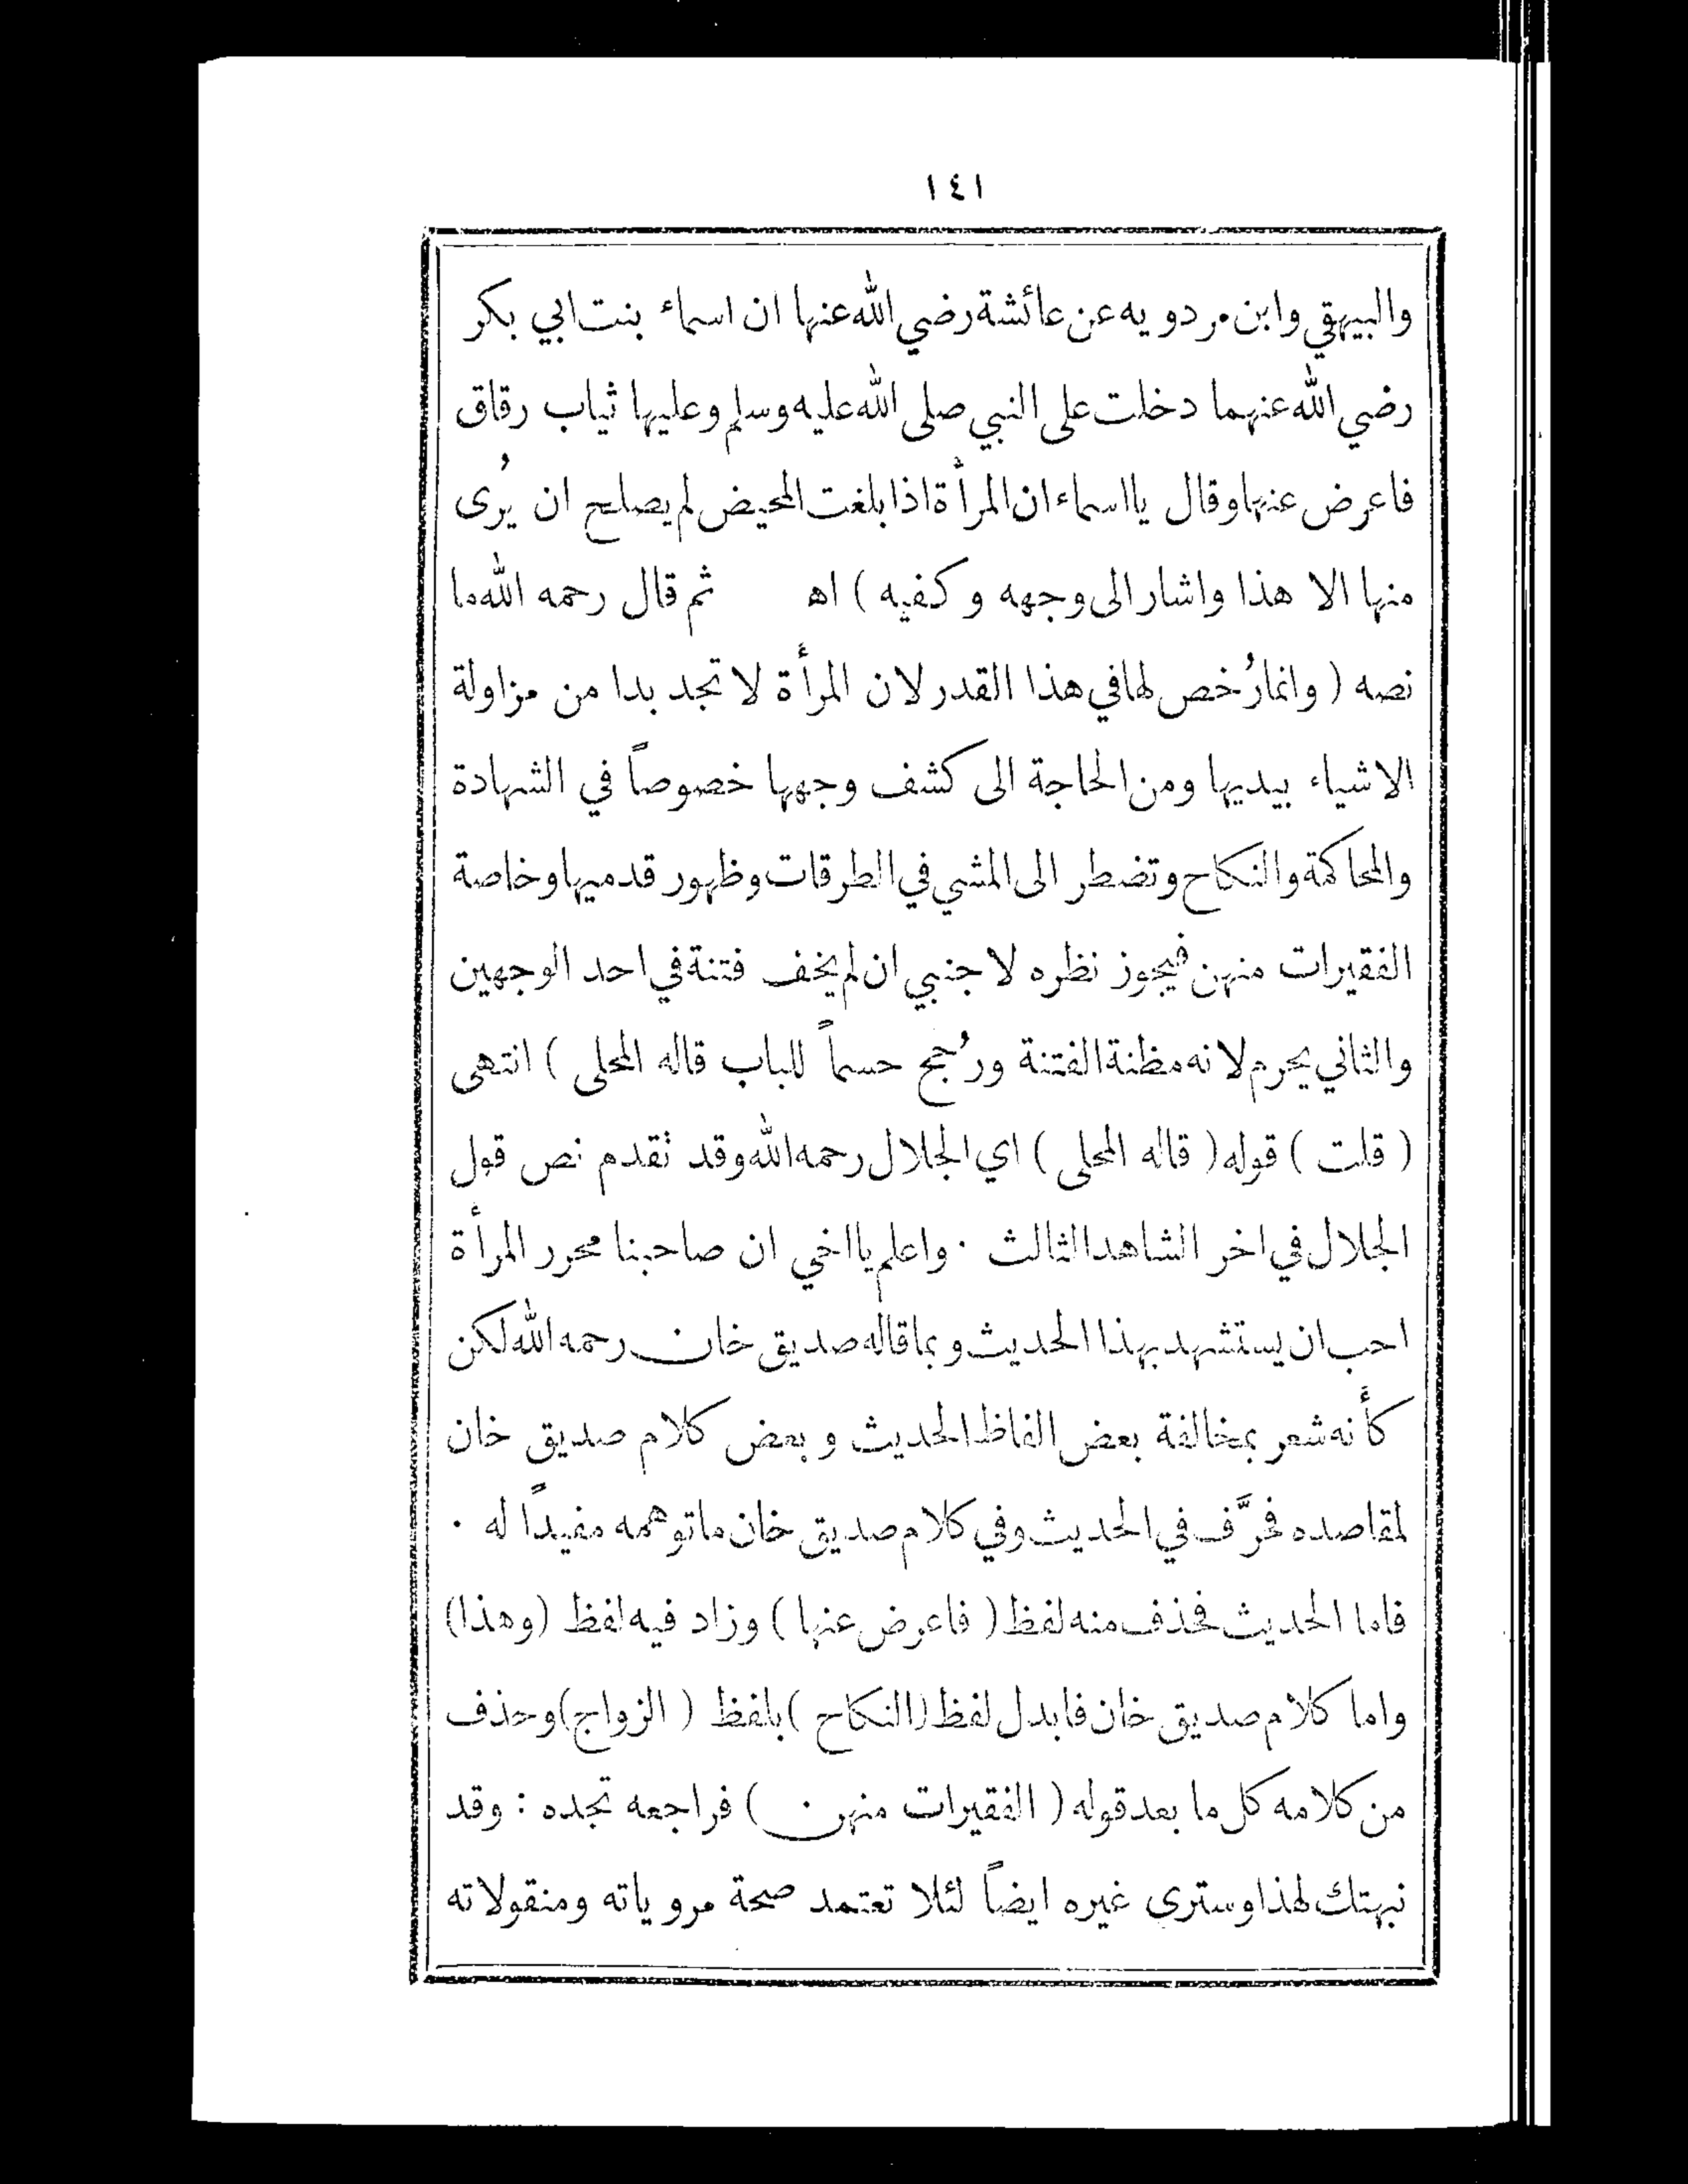 ١٤١
والبيهقي وابن مردويه عن عائشة رضي الله عنها ان اسماء بنت ابي بكر
رضي الله عنهما دخلت على النبي صلى الله عليه وسلم وعليها ثياب رقاق
فاعرض عنها وقال يا اسماء ان المرأة اذا بلغت المحيض لم يصلح ان يُرى
منها الا هذا واشار الى وجهه وكفيه ) اه ثم قال رحمه الله ما
نصه ( وانما رُخص لها في هذا القدر لان المرأة لا تجد بدا من مزاولة
الاشياء بيديها ومن الحاجة الى كشف وجهها خصوصاً في الشهادة
والمحاكمة والنكاح وتضطر الى المشي في الطرقات وظهور قدميها وخاصة
الفقيرات منهن فيجوز نظره لاجنبي ان لم يخف فتنة في احد الوجهين
والثاني يحرم لانه مظنة الفتنة ورُجح حسماً للباب قاله المحلى ) انتهى
( قلت ) قوله ( قاله المحلى ) اي الجلال رحمه الله وقد تقدم نص قول
الجلال في اخر الشاهد الثالث ٠ واعلم يا اخي ان صاحبنا محرر المرأة
احب ان يستشهد بهذا الحديث وبما قاله صديق خان رحمه الله لكن
كأنه شعر بمخالفة بعض الفاظ الحديث وبعض كلام صديق خان
لمقاصده فحرَّف في الحديث وفي كلام صديق خان ما توهمه مفيداً له ٠
فاما الحديث فحذف منه لفظ ( فاعرض عنها ) وزاد فيه لفظ (وهذا)
واما كلام صديق خان فابدل لفظ (النكاح ) بلفظ ( الزواج) وحذف
من كلامه كل ما بعد قوله ( الفقيرات منهن ) فراجعه تجده : وقد
نبهتك لهذا وسترى غيره ايضاً لئلا تعتمد صحة مروياته ومنقولاته